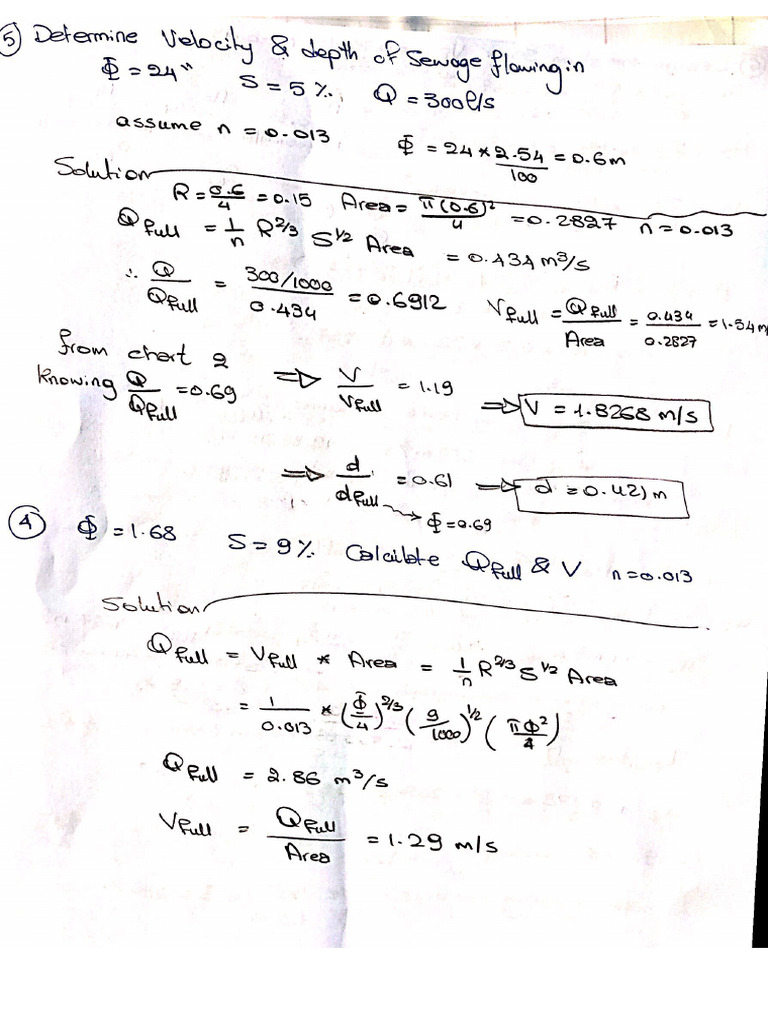 ⑤ Determine Velocity & depth of Sewage flowing in
Φ = 24" S = 5 ‰ Q = 300 l/s
assume n = 0.013 Φ = 24 * 2.54/100 = 0.6m
Solution
R = 0.6/4 = 0.15 Area = π(0.6)²/4 = 0.2827 n = 0.013
Q full = 1/n R^2/3 S^1/2 Area = 0.434 m³/s
∴ Q/Qfull = 300/1000/0.434 = 0.6912 Vfull = Qfull/Area = 0.434/0.2827 = 1.54 m
from chart 2
knowing Q/Qfull = 0.69 ⇒ V/Vfull = 1.19 ⇒ V = 1.8268 m/s
⇒ d/dfull = 0.61 ⇒ d = 0.421 m
Φ = 0.69
④ Φ = 1.68 S = 9 ‰ Calculate Qfull & V n = 0.013
Solution
Qfull = Vfull * Area = 1/n R^2/3 S^1/2 Area
= 1/0.013 * (Φ/4)^2/3 (9/1000)^1/2 (πΦ²/4)
Qfull = 2.86 m³/s
Vfull = Qfull/Area = 1.29 m/s